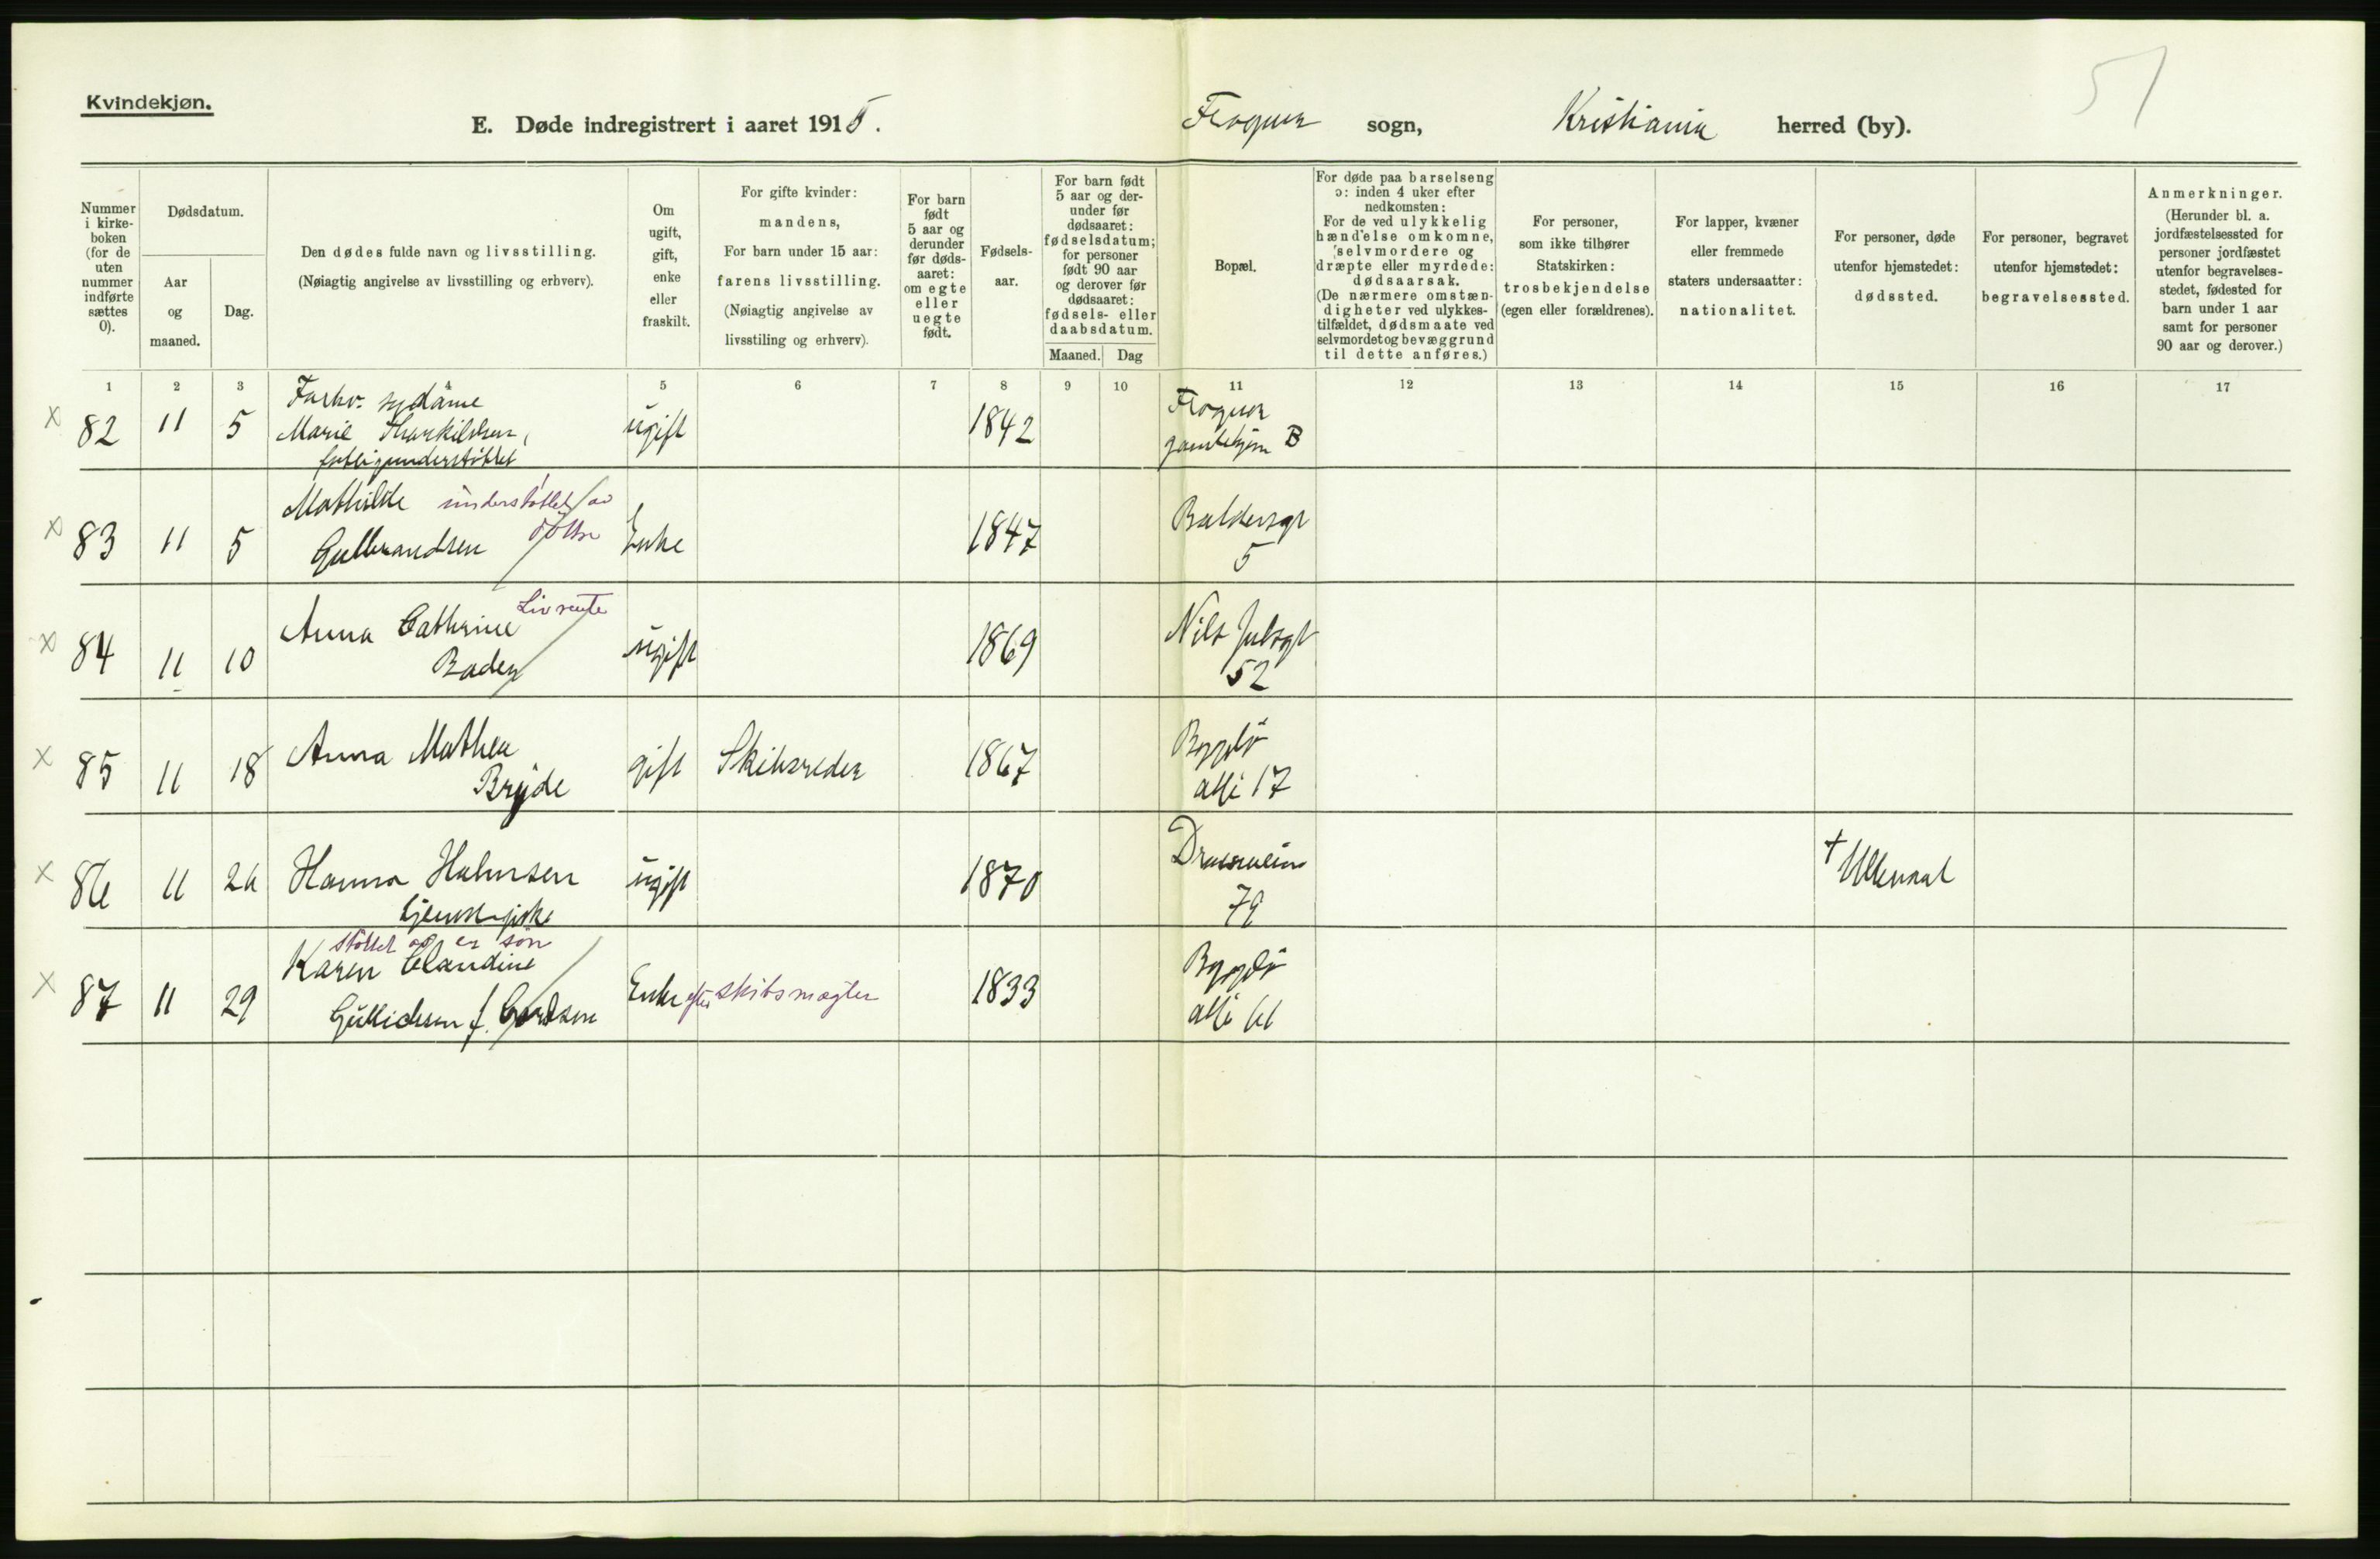 Kvindekjøn.
51
E. Døde indregistrert i aaret 1915. Frogner sogn, Kristiania herred (by).
Nummer i kirke-boken (for de uten nummer indførte sættes 0).
Dødsdatum.
Aar og maaned.
Dag.
Den dødes fulde navn og livsstilling.
(Nøiagtig angivelse av livsstilling og erhverv).
Om ugift, gift, enke eller fraskilt.
For gifte kvinder:
mandens,
For barn under 15 aar:
farens livsstilling.
(Nøiagtig angivelse av
livsstiling og erhverv).
For barn født 5 aar og derunder før døds-aaret: om egte eller uegte født.
Fødsels-aar.
For barn født 5 aar og der-under før dødsaaret: fødselsdatum; for personer født 90 aar og derover før dødsaaret: fødsels- eller daabsdatum.
Maaned. Dag
Bopæl.
For døde paa barselseng
ɔ: inden 4 uker efter
nedkomsten:
For de ved ulykkelig
hændelse omkomne,
selvmordere og
dræpte eller myrdede:
dødsaarsak.
(De nærmere omstæn-
digheter ved ulykkes-
tilfældet, dødsmaate ved
selvmordet og bevæggrund
til dette anføres.)
For personer,
som ikke tilhører
Statskirken:
trosbekjendelse
(egen eller forældrenes).
For lapper, kvæner
eller fremmede
staters undersaatter:
nationalitet.
For personer, døde
utenfor hjemstedet:
dødssted.
For personer, begravet
utenfor hjemstedet:
begravelsessted.
Anmerkninger.
(Herunder bl. a.
jordfæstelsessted for
personer jordfæstet
utenfor begravelses-
stedet, fødested for
barn under 1 aar
samt for personer
90 aar og derover.)
1 2 3 4 5 6 7 8 9 10 11 12 13 14 15 16 17
x 82 11 5 Forhv. sydame
Marie Thorkildsen,
fattigunderstøttet
ugift 1842 Frogner
gamlehjem B
x 83 11 5 Mathilde understøttet av
Gulbrandsen
Enke 1847 Baldersgt
5
x 84 11 10 Livrente
Anna Cathrine
Baden
ugift 1869 Nils Julsgt
52
x 85 11 18 Anna Mathea
Bryde
gift Skibsreder 1867 Bygdø
alle 17
x 86 11 26 Hanna Halvorsen
tjenestepike
ugift 1870 Drammensv
79
+ Ullevaal
x 87 11 29 støttet av en søn
Karen Claudine
Gullichsen f.
Enke efter skibsmægler 1833 Bygdø
alle 61